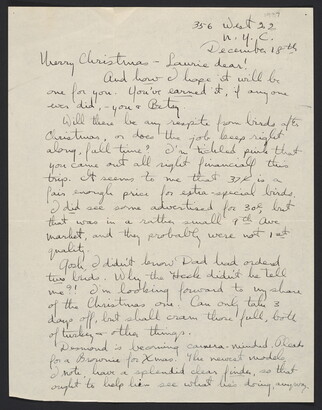 1939
356 West 22
N.Y.C.
December 18th
Merry Christmas - Laurie dear!
And how I hope it will be
one for you. You've earned it, if anyone
ever did, - you & Betsy.
Will there be any respite from birds after
Christmas, or does the job keep right
along, full time? I'm tickled pink that
you came out all right financially this
trip. It seems to me that 37¢ is a
fair enough price for extra-special birds.
I did see some advertised for 30¢, but
that was in a rather small 9th Ave
market, and they probably were not 1st
quality.
Gosh, I didn't know Dad had ordered
two birds. Why the Heck didn't he tell
me?! I'm looking forward to my share
of the Christmas one. Can only take 3
days off, but shall cram those full, both
of turkey & other things.
Desmond is becoming camera-minded. Pleads
for a Brownie for Xmas. The newest models,
I note, have a splendid clear finder, so that
ought to help him see what he's doing, anyway.